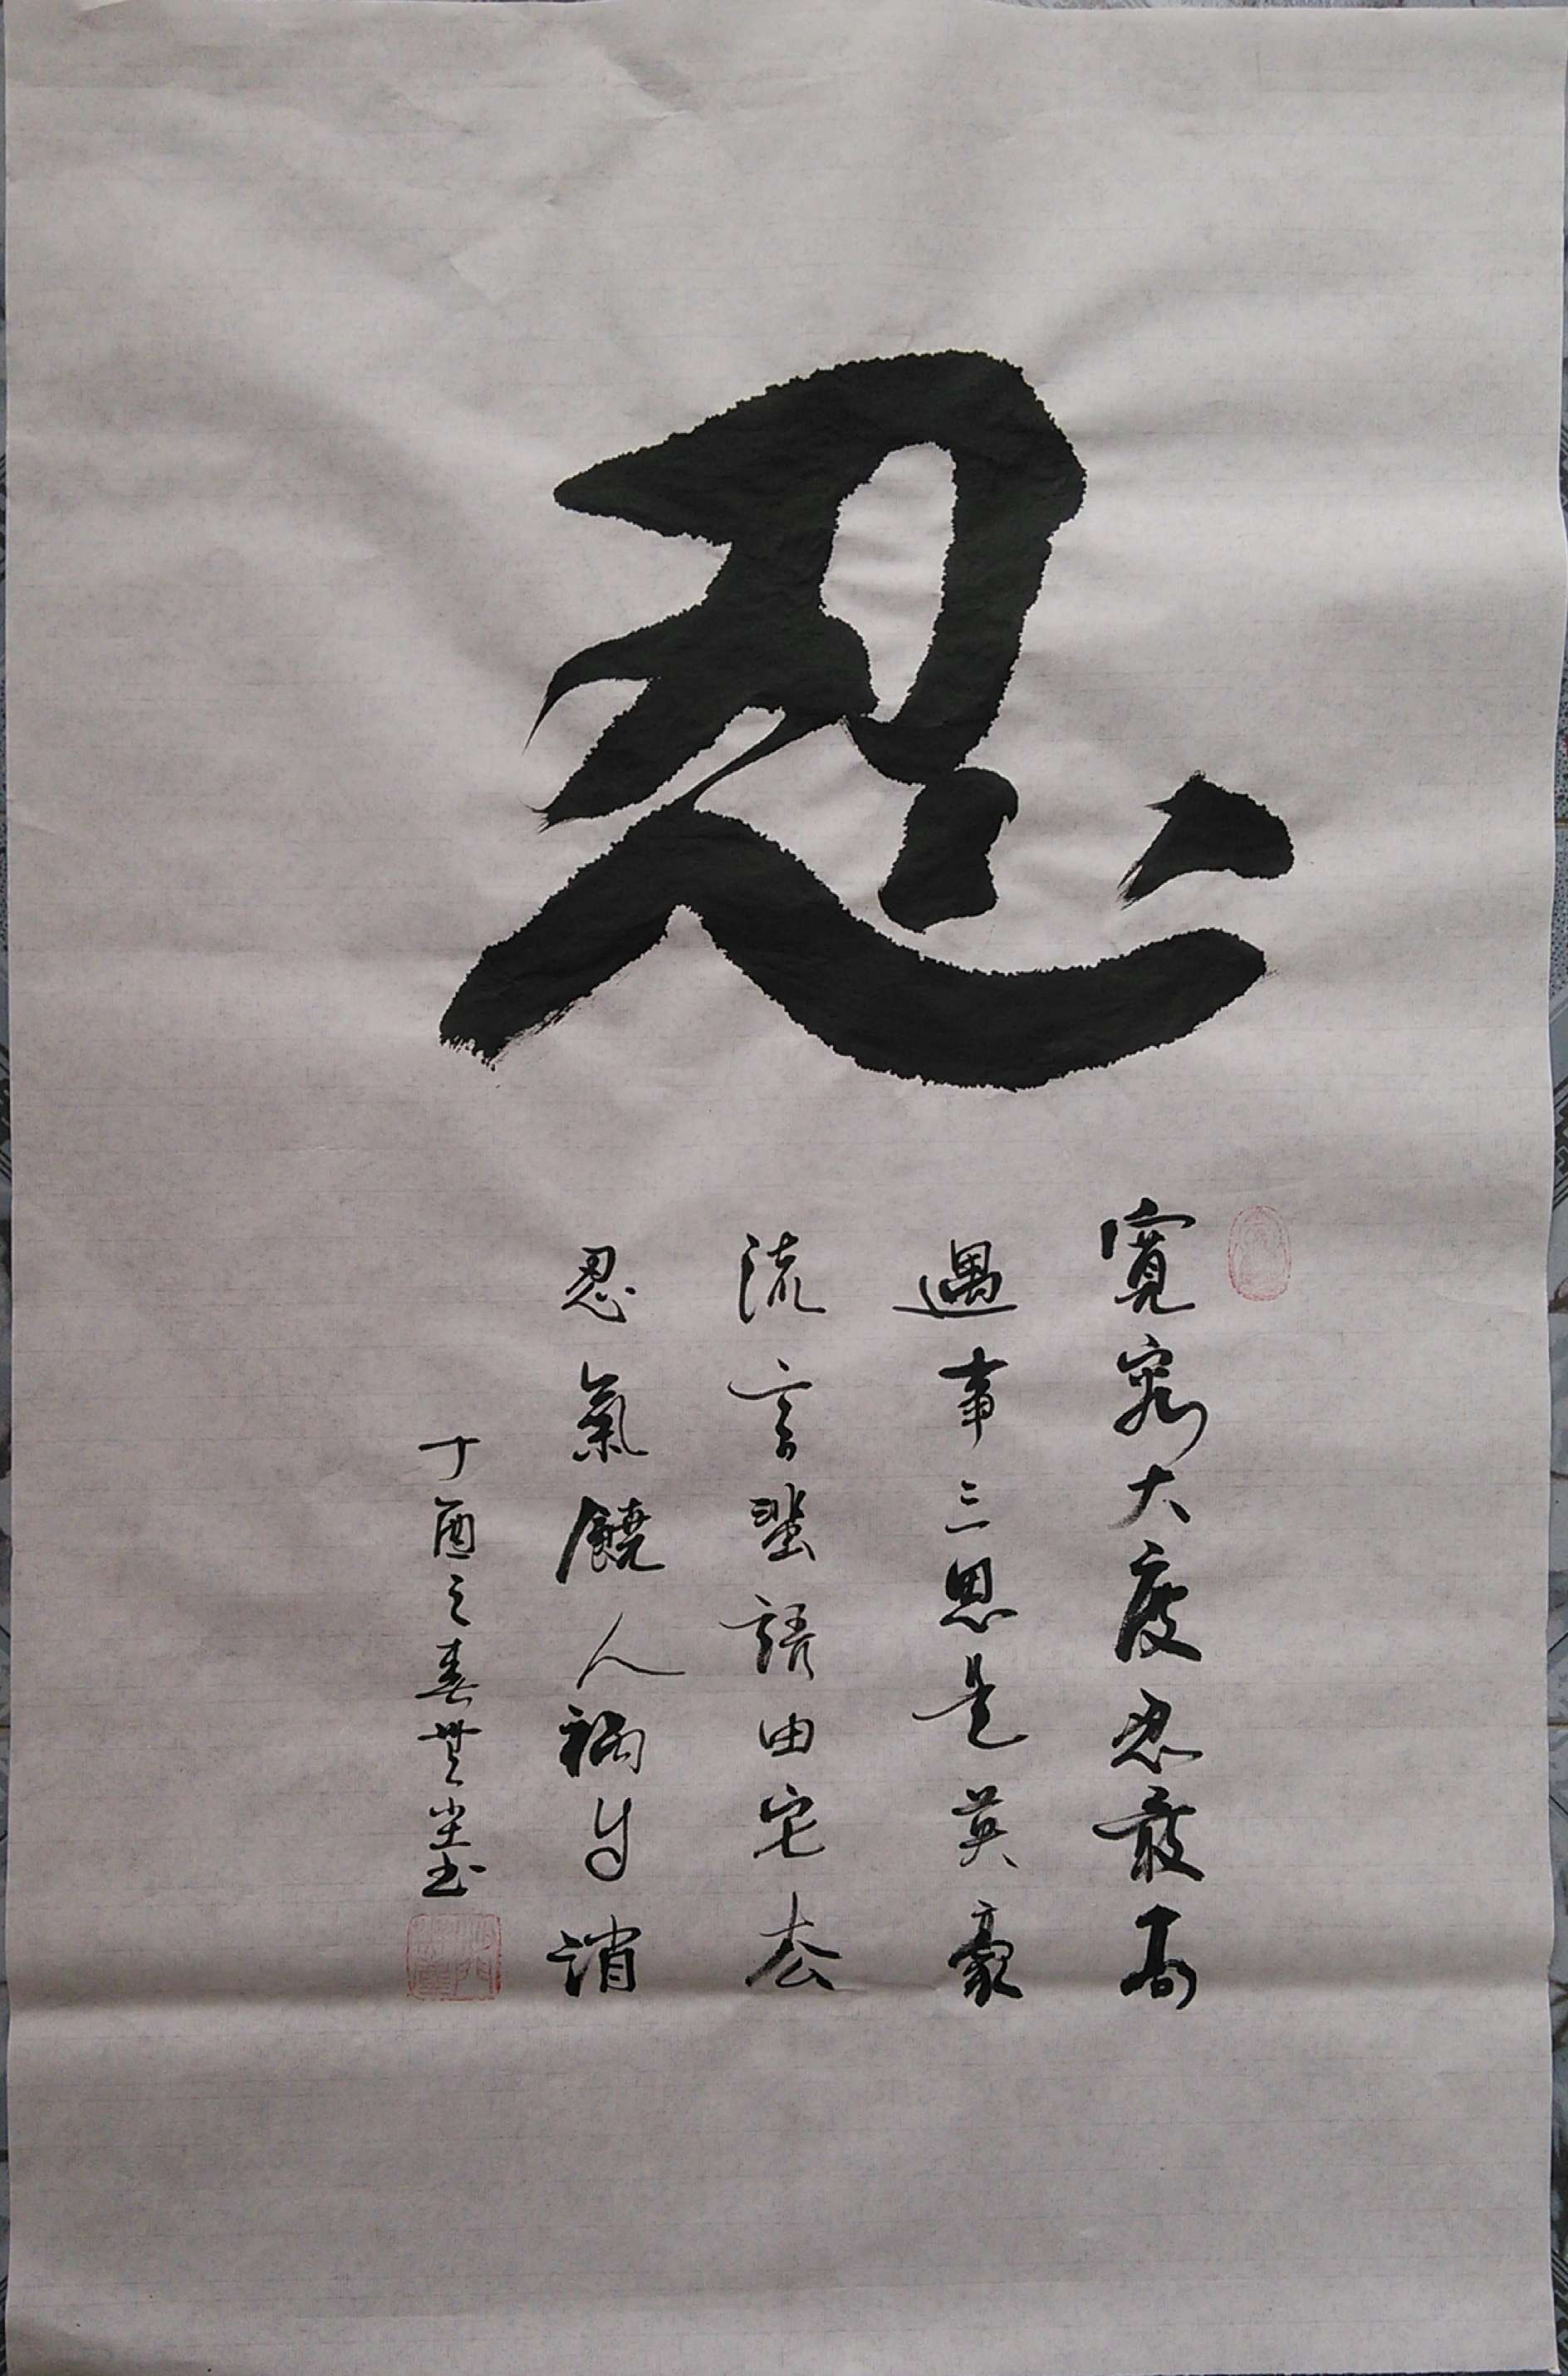 忍
寬容大度忍最高
遇事三思是英豪
流言蜚語由它去
忍氣饒人禍自消
丁酉之春世尘书